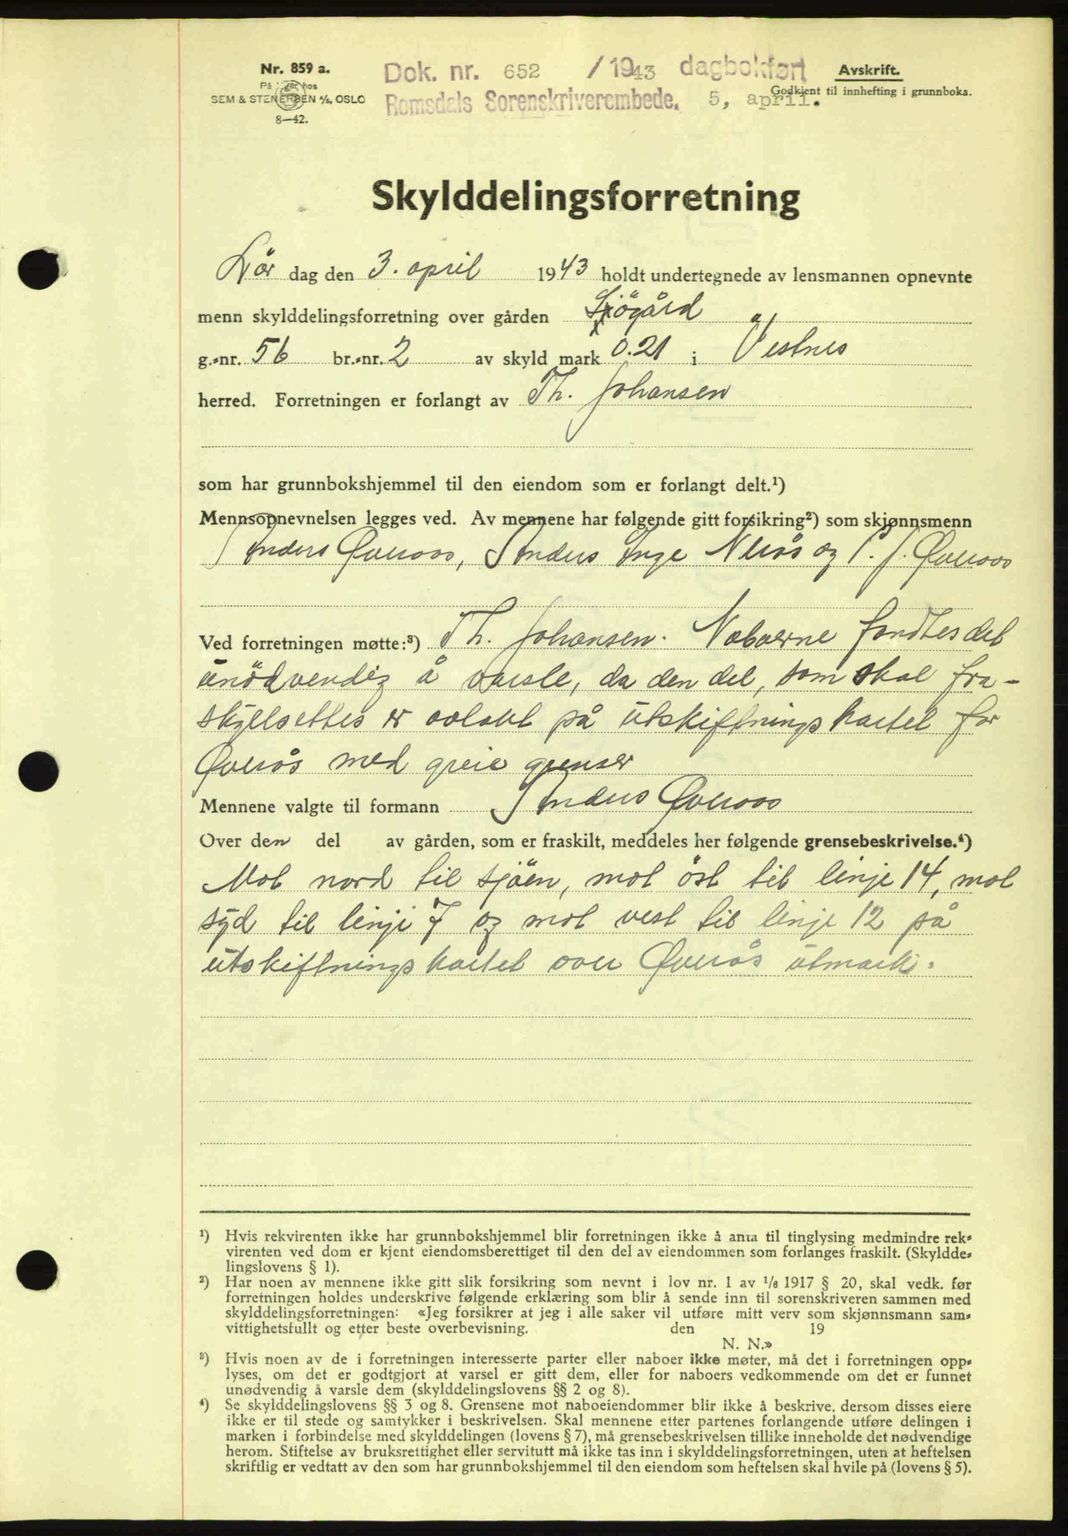 Nr. 859 a.
På lager hos
SEM & STENERSEN A/S, OSLO
8—42.
Dok. nr. 652 /1943 dagbokført
Romsdals Sorenskriverembede. 5, april.
Avskrift.
Godkjent til innhefting i grunnboka.
Skylddelingsforretning
Lör dag den 3. april 1943 holdt undertegnede av lensmannen opnevnte
menn skylddelingsforretning over gården Sjögård
g.-nr. 56 br.-nr. 2 av skyld mark 0.21 i Vestnes
herred. Forretningen er forlangt av Th. Johansen
som har grunnbokshjemmel til den eiendom som er forlangt delt.¹)
Mennsopnevnelsen legges ved. Av mennene har følgende gitt forsikring²) som skjønnsmenn
Anders Øveraas, Anders Inge Nerås og P. J. Øveraas
Ved forretningen møtte:³) Th. Johansen. Naboerne fandtes det
unödvendig å varsle, da den del, som skal fra-
skyllsettes er avlagt på utskiftningskartet for
Øverås med greie grenser
Mennene valgte til formann Anders Øveraas
Over den del av gården, som er fraskilt, meddeles her følgende grensebeskrivelse.⁴)
Mot nord til sjöen, mot öst til linje 14, mot
syd til linje 7 og mot vest til linje 12 på
utskiftningskartet over Øverås utmark.
¹) Hvis rekvirenten ikke har grunnbokshjemmel blir forretningen ikke å anta til tinglysing medmindre rek-
virenten ved dom er kjent eiendomsberettiget til den del av eiendommen som forlanges fraskilt. (Skyldde-
lingslovens § 1).
²) Har noen av mennene ikke gitt slik forsikring som nevnt i lov nr. 1 av ¹/₈ 1917 § 20, skal vedk. før
forretningen holdes underskrive følgende erklæring som blir å sende inn til sorenskriveren sammen med
skylddelingsforretningen: «Jeg forsikrer at jeg i alle saker vil utføre mitt verv som skjønnsmann sam-
vittighetsfullt og etter beste overbevisning. den 19
N. N.»
³) Hvis noen av de i forretningen interesserte parter eller naboer ikke møter, må det i forretningen opp-
lyses, om det er godtgjort at varsel er gitt dem, eller for naboers vedkommende om det er funnet
unødvendig å varsle dem (skylddelingslovens §§ 2 og 8).
⁴) Se skylddelingslovens §§ 3 og 8. Grensene mot naboeiendommer blir ikke å beskrive, dersom disses eiere
ikke er til stede og samtykker i beskrivelsen. Skal mennene etter partenes forlangende utføre delingen i
marken i forbindelse med skylddelingen (lovens § 7), må grensebeskrivelsen tillike inneholde det nødvendige
herom. Stiftelse av bruksrettighet eller servitutt må ikke tas inn i skylddelingsforretningen, uten at heftelsen
skriftlig er vedtatt av den som har grunnbokshjemmel til den eiendom som heftelsen skal hvile på (lovens § 5).